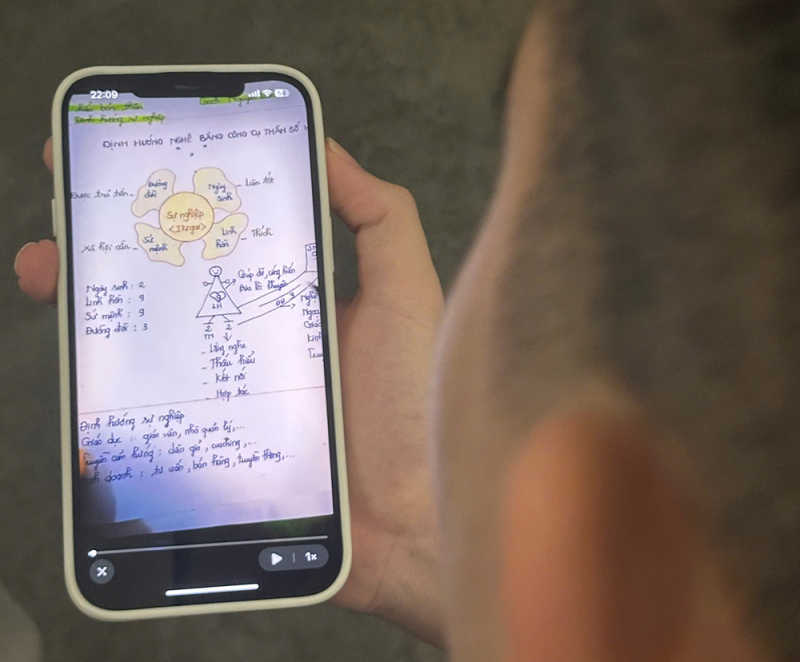 22:09
Hiểu bản thân
Coach
Định hướng sự nghiệp
ĐỊNH HƯỚNG NGHỀ BẰNG CÔNG CỤ THẦN SỐ H
Được trả tiền
Đường đời
Ngày sinh
Làm tốt
Sự nghiệp
<Ikigai>
Xã hội cần
Sứ mệnh
Linh hồn
Thích
Ngày sinh : 2
Linh hồn : 9
Sứ mệnh : 9
Đường đời : 3
Giúp đỡ, cống hiến
9
LH
ĐĐ 3
2 2
- Lắng nghe
- Thấu hiểu
- Kết nối
- Hợp tác
Định hướng sự nghiệp
Giáo dục : giáo viên, nhà quản lý,...
Truyền cảm hứng : diễn giả, coaching,...
doanh : tư vấn, bán hàng, truyền thông,...
1x